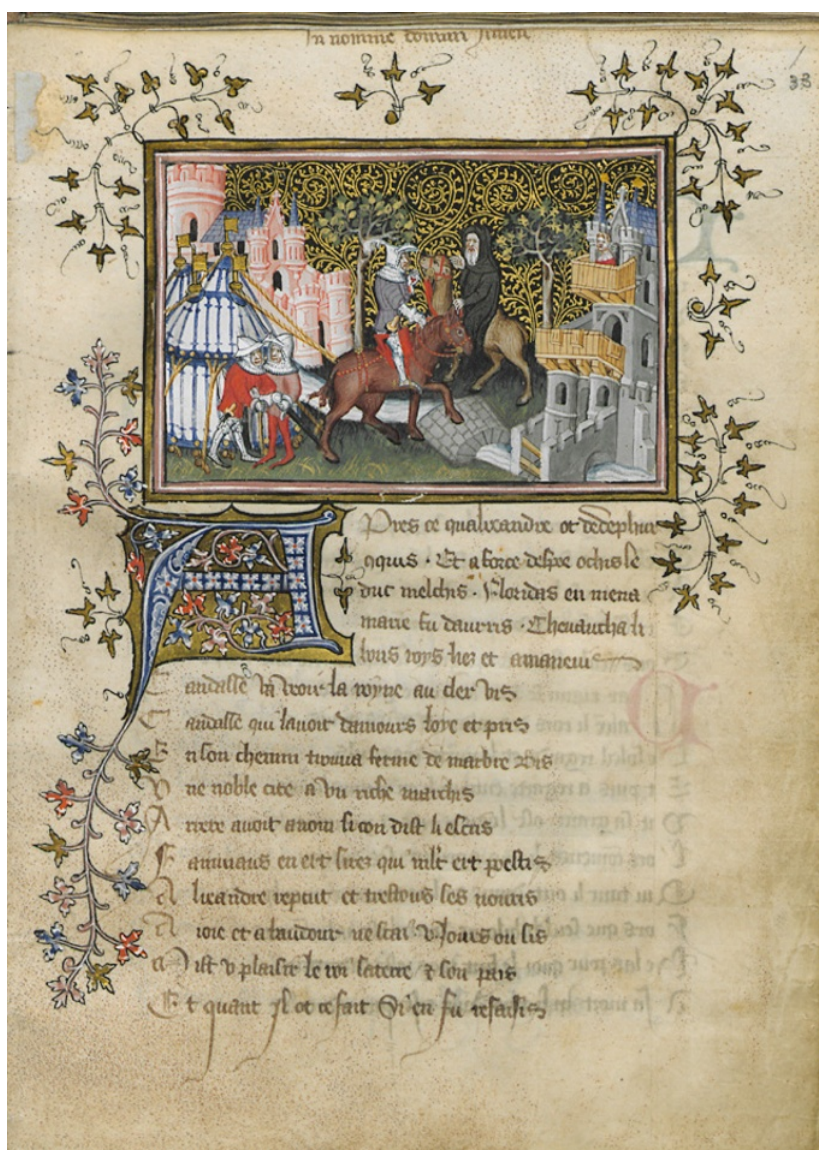 In nomine domini Amen
33
Apres ce qualixandre ot dedephur
conquis · Et a force despee ochis le
duc melchis · Floridas en mena
marie fu dauris · Chevaucha li
bons roys liez et
Candasse va veoir la royne au cler vis
Candasse qui lavoit damours loye et pris
En son chemin trouva ferme de marbre bis
Une noble cite a un riche marchis
avoit a nom si con dist li escris
en ert sires qui mlt ert poestis
Alixandre rechut et trestous ses nouris
A ioie et a baudour ne scai v jours ou sis
Mist v plaisir le roi sa terre & son pais
Et quant Il ot ce fait Si en fu